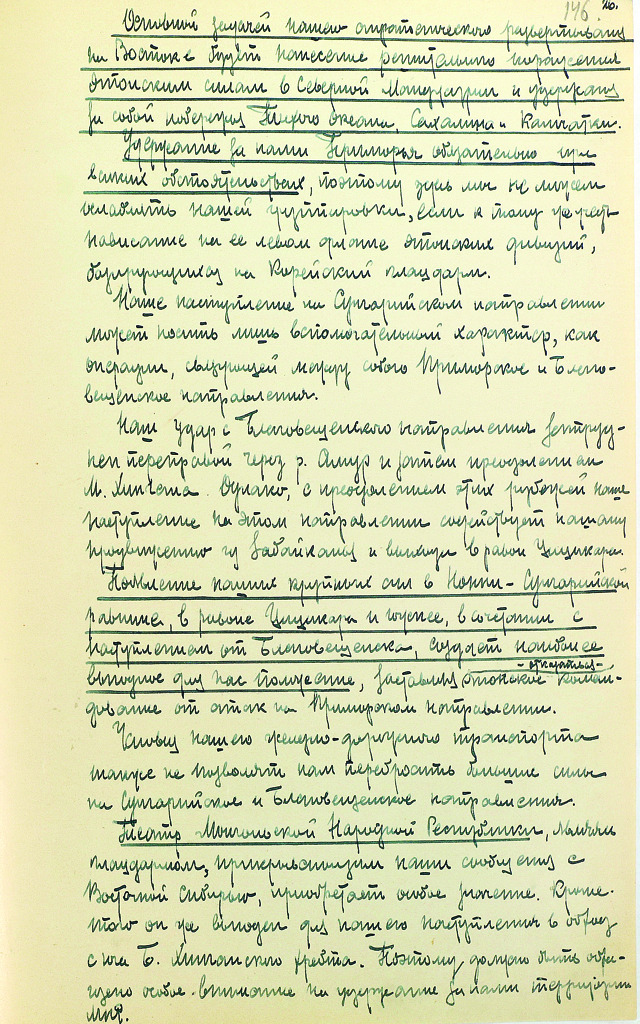 146 26.
Основной задачей нашего стратегического развертывания
на Востоке будет нанесение решительного поражения
японским силам в Северной Манчжурии и удержание
за собой побережья Тихого океана, Сахалина и Камчатки.
Удержание за нами Приморья обязательно при
всяких обстоятельствах, поэтому здесь мы не можем
ослаблять нашей группировки, если к тому же учесть
нависание на ее левом фланге японских дивизий,
базирующихся на Корейский плацдарм.
Наше наступление на Сунгарийском направлении
может носить лишь вспомогательный характер, как
операции, связующей между собою Приморское и Благо-
вещенское направления.
Наш удар с Благовещенского направления затруд-
нен переправой через р. Амур и затем преодолением
М. Хингана. Однако, с преодолением этих рубежей наше
наступление на этом направлении содействует нашему
продвижению из Забайкалья и выходу в район Цицикара.
Появление наших крупных сил в Нонни-Сунгарийской
равнине, в районе Цицикара и южнее, в сочетании с
наступлением от Благовещенска, создает наиболее
выгодное для нас положение, заставляя японское коман-
- отказаться -
дование от атак на Приморском направлении.
Условия нашего железно-дорожного транспорта
также не позволят нам перебросить большие силы
на Сунгарийское и Благовещенское направления.
Театр Монгольской Народной Республики, являясь
плацдармом, прикрывающим наши сообщения с
Восточной Сибирью, приобретает особое значение. Кроме
того он же выгоден для нашего наступления в обход
с юга Б. Хинганского хребта. Поэтому должно быть обра-
щено особое внимание на удержание за нами территории
МНР.